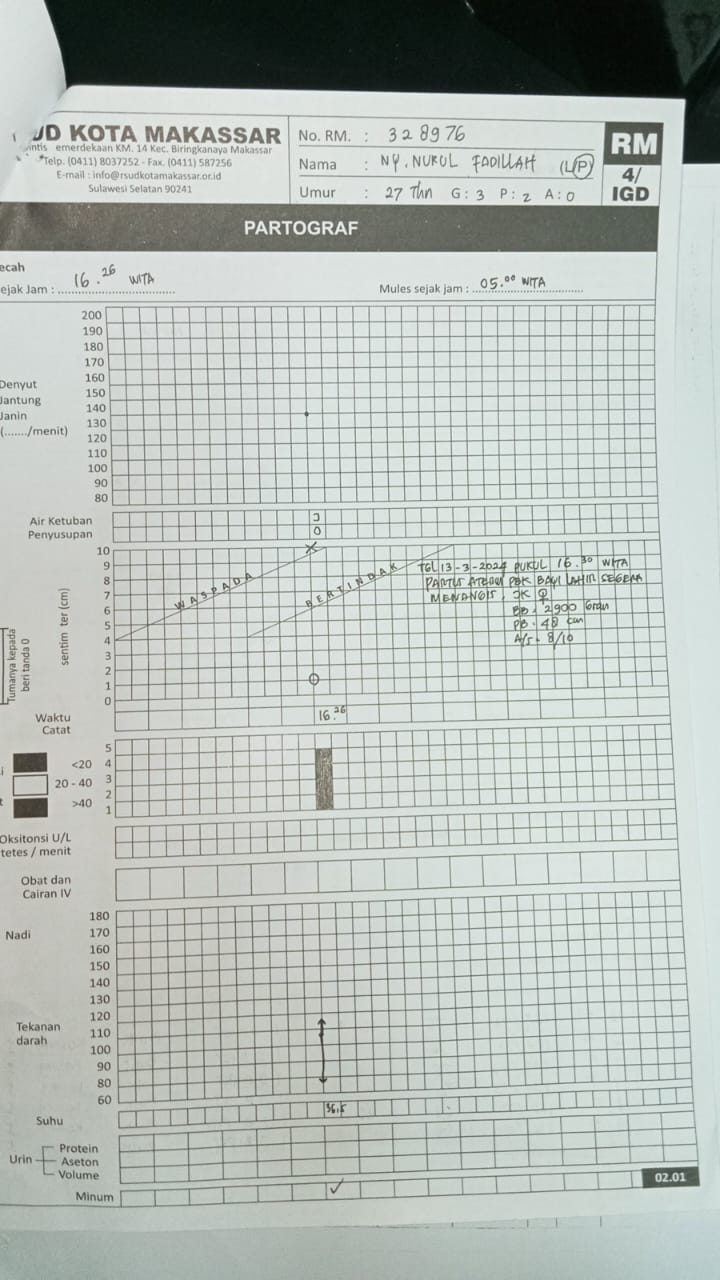 UD KOTA MAKASSAR
intis emerdekaan KM. 14 Kec. Biringkanaya Makassar
Telp. (0411) 8037252 - Fax. (0411) 587256
E-mail : info@rsudkotamakassar.or.id
Sulawesi Selatan 90241
No. RM. : 328976
Nama : NY. NURUL FADILLAH (L/P)
Umur : 27 Thn G: 3 P: 2 A: 0
RM
4/
IGD
PARTOGRAF
ecah
ejak Jam : 16.26 WITA
Mules sejak jam : 05.00 WITA
200
190
180
170
160
150
140
130
120
110
100
90
80
Denyut
Jantung
Janin
(......./menit)
Air Ketuban
Penyusupan
J
0
10
9
8
7
6
5
4
3
2
1
0
sentim ter (cm)
Tumanya kepada
beri tanda 0
WASPADA
BERTINDAK
TGL 13-3-2024 PUKUL 16.30 WITA
PARTUS ATERM PBK BAYI LAHIR SEGERA
MENANGIS, JK ♀
BB : 2900 Gram
PB : 48 cm
A/S : 8/10
Waktu
Catat
16.26
i
t
<20
20 - 40
>40
5
4
3
2
1
Oksitonsi U/L
tetes / menit
Obat dan
Cairan IV
Nadi
180
170
160
150
140
130
120
110
100
90
80
60
Tekanan
darah
Suhu
36,5
Urin
Protein
Aseton
Volume
Minum
✓
02.01